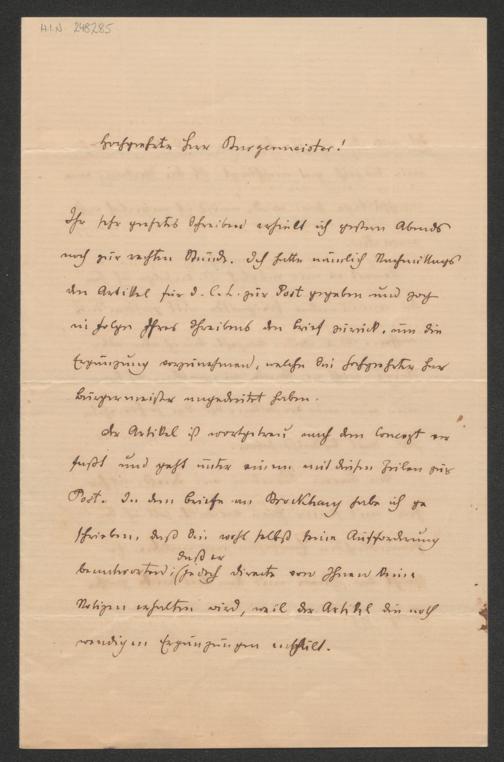 H.I.N. 248285
Hochgeehrter Herr Bürgermeister!
Ihr sehr geehrtes Schreiben erhielt ich gestern Abends
noch zur rechten Stunde. Ich hatte nämlich Nachmittags
den Artikel für d. C. L. zur Post gegeben und zog
in Folge Ihres Schreibens den Brief zurück, um die
Ergänzung vorzunehmen, welche Sie hochgeehrter Herr
Bürgermeister angedeutet haben.
Der Artikel ist wortgetreu nach dem Concept ver
faßt und geht unter einem mit diesen Zeilen zur
Post. In dem Briefe an Brockhaus habe ich ge
schrieben, daß Sie wohl selbst seine Aufforderung
beantworten; daß er
jedoch directe von Ihnen keine
Notizen erhalten wird, weil der Artikel die noth
wendigen Ergänzungen enthält.